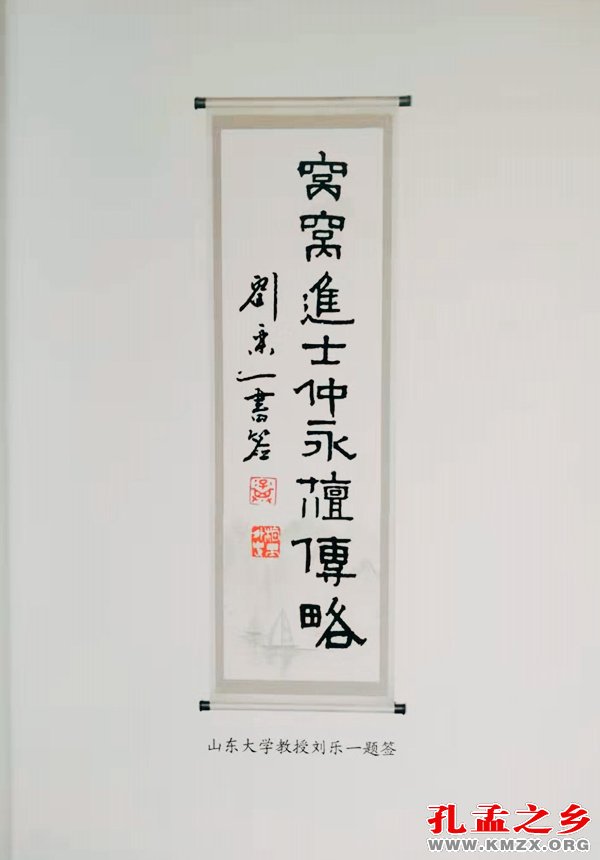 窝窝進士仲永檀傳略
劉樂一書簽
山东大学教授刘乐一题签
孔孟之乡
WWW.KMZX.ORG